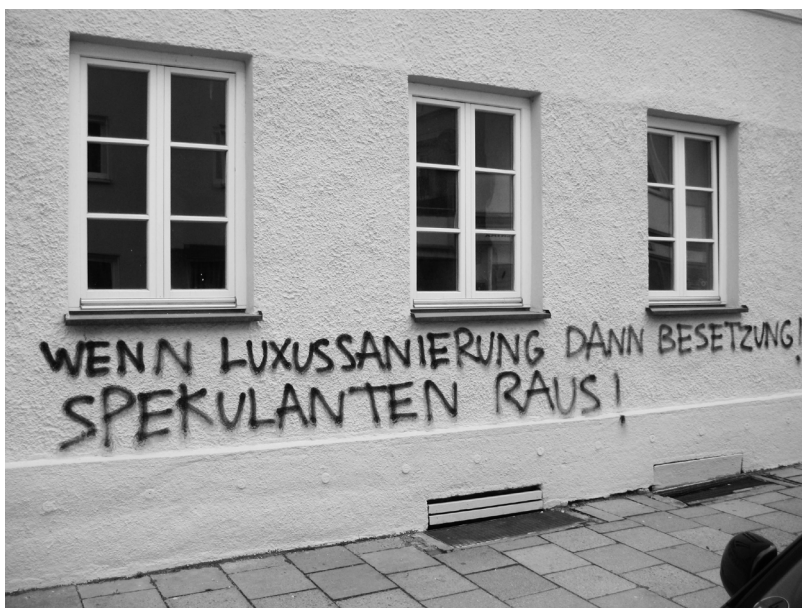 WENN LUXUSSANIERUNG DANN BESETZUNG!
SPEKULANTEN RAUS!